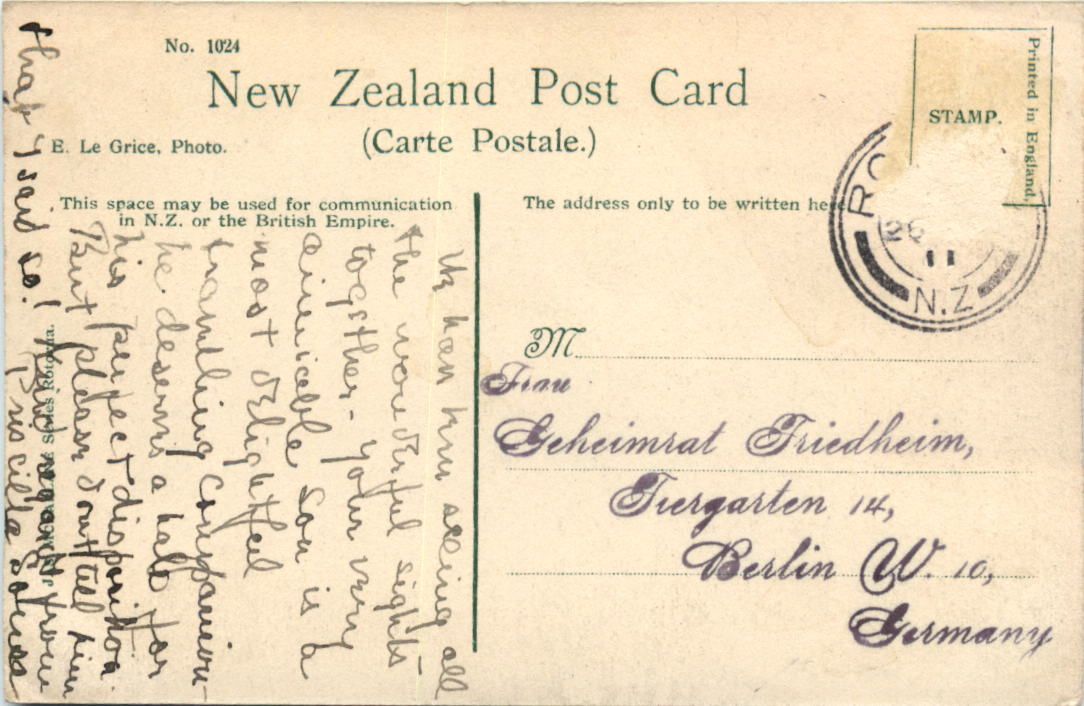 No. 1024
New Zealand Post Card
(Carte Postale.)
E. Le Grice, Photo.
This space may be used for communication
in N.Z. or the British Empire.
The address only to be written here
STAMP.
Printed in England.
RO
26
11
N.Z
M
Frau
Geheimrat Friedheim,
Tiergarten 14,
Berlin W. 10,
Germany
We have been seeing all
the wonderful sights
together - your very
amicable son is a
most delightful
travelling companion -
he deserves a halo for
his perfect disposition.
But please don't tell him
that I said so! Kind regards from
Priscilla
Rotorua.